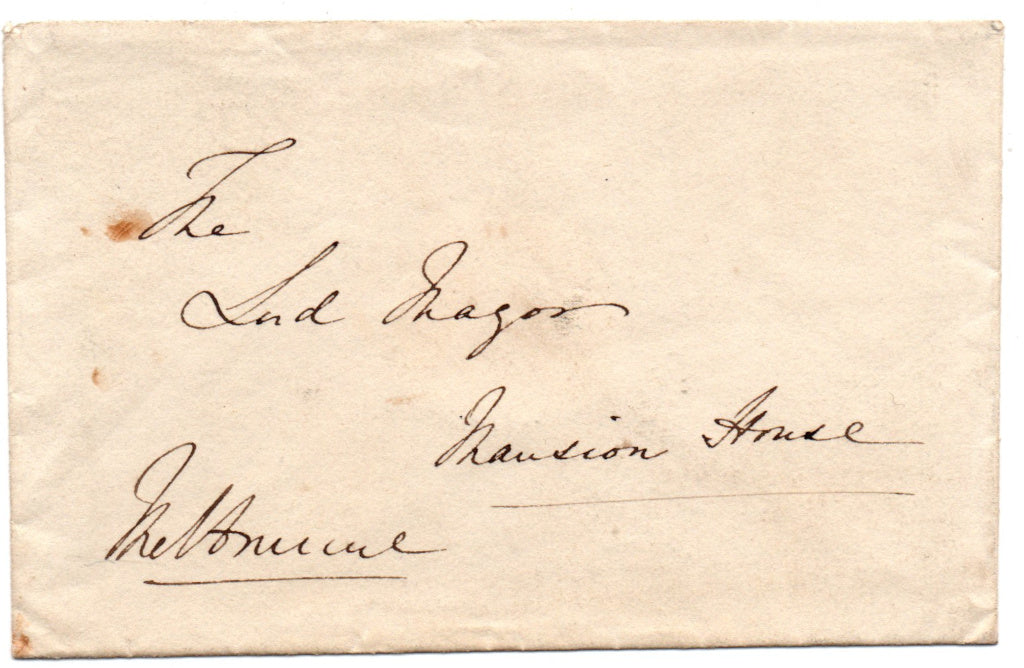 The
Lord Mayor
Mansion House
Melbourne